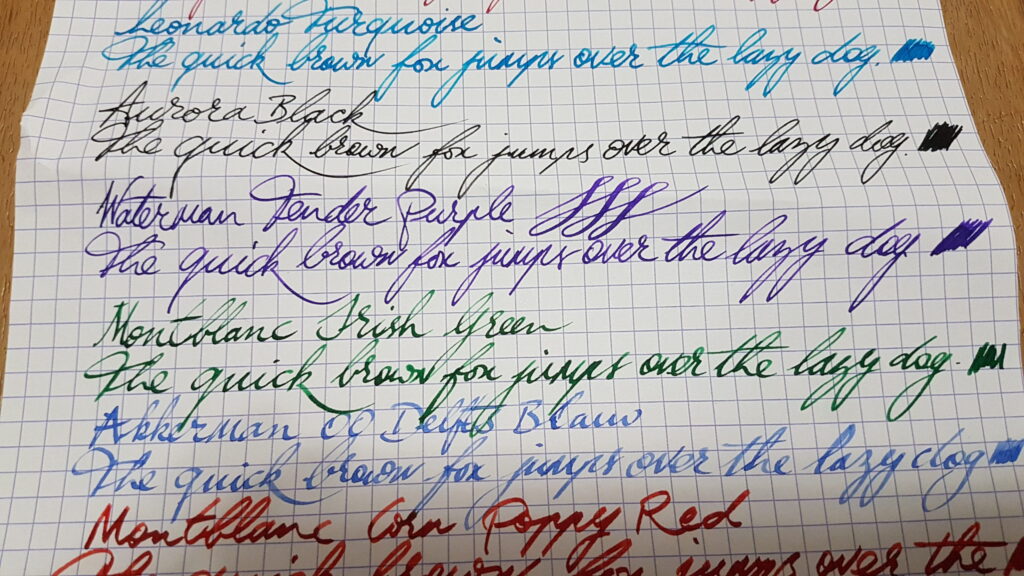 Leonardo Turquoise
The quick brown fox jumps over the lazy dog.
Aurora Black
The quick brown fox jumps over the lazy dog.
Waterman Tender Purple
The quick brown fox jumps over the lazy dog.
Montblanc Irish Green
The quick brown fox jumps over the lazy dog.
Akkerman 09 Delfts Blauw
The quick brown fox jumps over the lazy dog
Montblanc Corn Poppy Red
The quick brown fox jumps over the